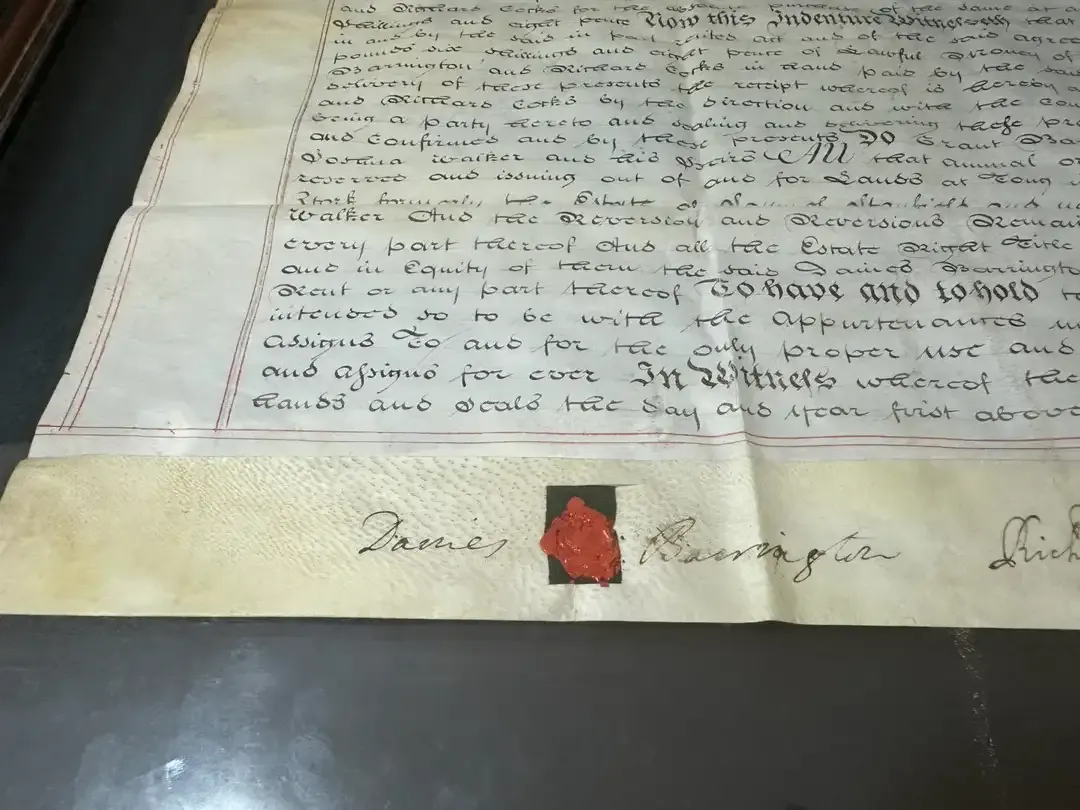 and Richard Cocks for the absolute purchase of the same at a
Shillings and eight pence Now this Indenture Witnesseth that
in and by the said in part recited act and of the said agree
pounds six shillings and eight pence of Lawful Money of
Barrington and Richard Cocks in hand paid by the said
delivery of these presents the receipt whereof is hereby a
and Richard Cocks by the direction and with the Con
being a party hereto and sealing and delivering these pre
and Confirmed and by these presents Do Grant Bar
Joshua Walker and his Heirs All that annual or
reserved and issuing out of and for Lands at Tong
York formerly the Estate of
Walker And the Reversion and Reversions Remain
every part thereof And all the Estate Right Title
and in Equity of them the said Daines Barrington
Rent or any part thereof To have and to hold t
intended so to be with the appurtenances un
assigns To and for the only proper use and
and assigns for ever In Witness whereof the
hands and Seals the day and year first above
Daines Barrington Rich